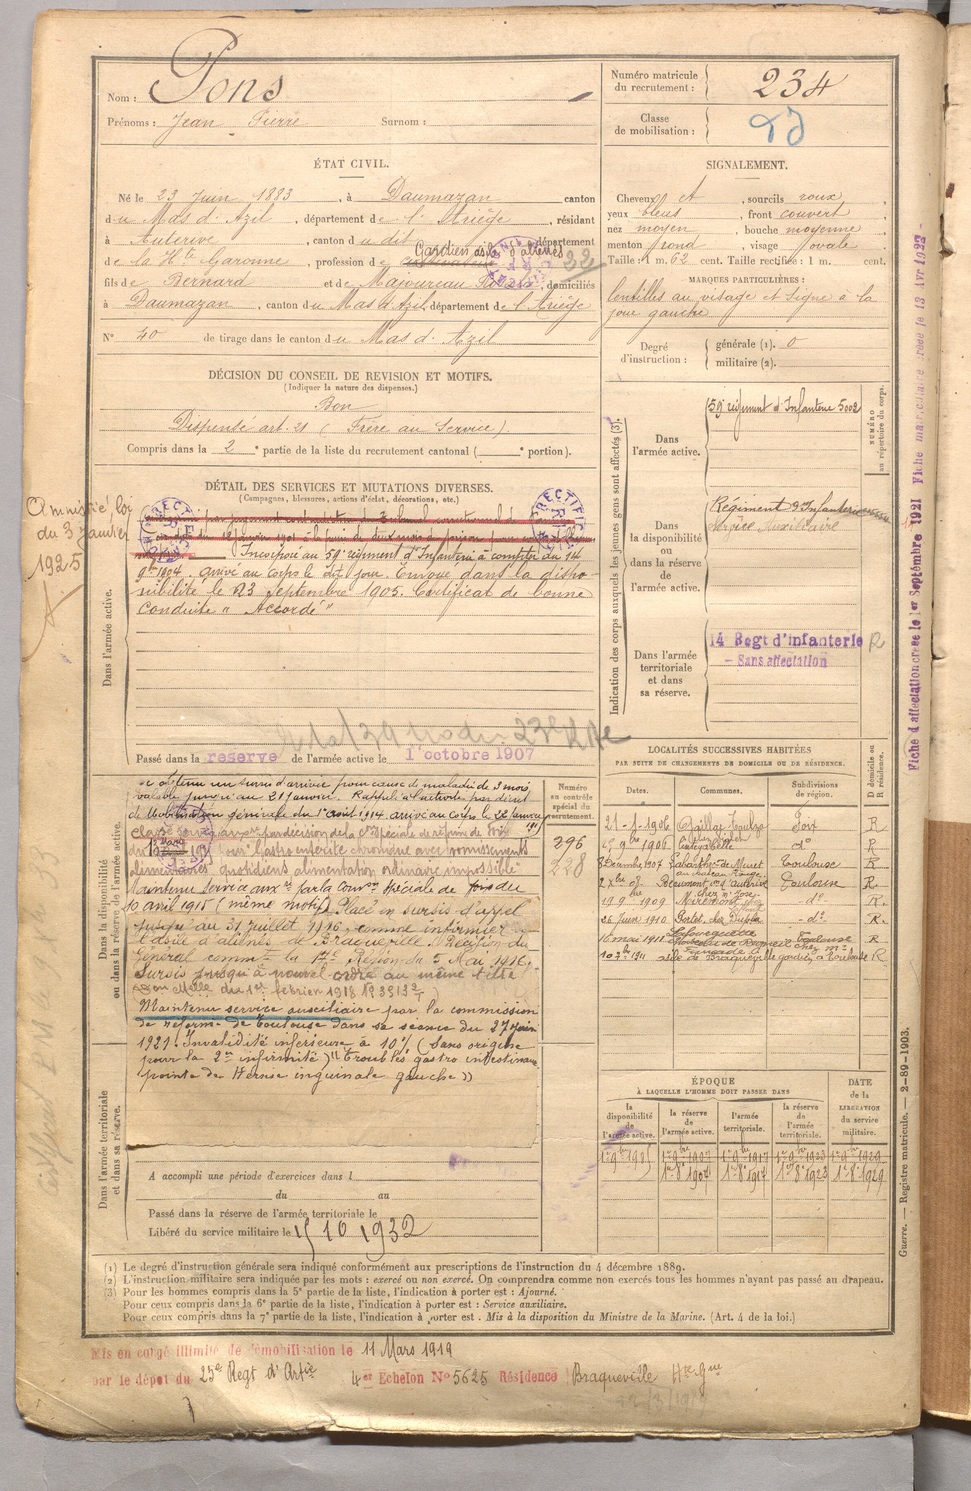 Nom : Pons
Prénoms : Jean Pierre Surnom :
Numéro matricule du recrutement : 234
Classe de mobilisation :
ÉTAT CIVIL.
Né le 23 Juin 1883, à Daumazan canton
du Mas d'Azil, département de l'Ariège, résidant
à Auterive, canton du dit, département
de la Hte Garonne, profession de cultivateur Gardien asile d'aliénés
22
fils de Bernard et de Majoureau, domiciliés
à Daumazan, canton du Mas d'Azil, département de l'Ariège
N° 40 de tirage dans le canton du Mas d'Azil
SIGNALEMENT.
Cheveux et, sourcils roux
yeux bleus, front couvert
nez moyen, bouche moyenne
menton rond, visage ovale
Taille : 1 m. 62 cent. Taille rectifiée : 1 m. cent.
MARQUES PARTICULIÈRES :
lentilles au visage et signe à la
joue gauche
Degré d'instruction : générale (1). 0
militaire (2).
DÉCISION DU CONSEIL DE REVISION ET MOTIFS.
(Indiquer la nature des dispenses.)
Bon
Dispensé art. 21 (Frère au Service).
Compris dans la 2e partie de la liste du recrutement cantonal ( e portion).
DÉTAIL DES SERVICES ET MUTATIONS DIVERSES.
(Campagnes, blessures, actions d'éclat, décorations, etc.)
Amnistié loi
du 3 Janvier
1925
RECTIFICA
Dans l'armée active.
Incorporé au 59e régiment d'Infanterie à compter du 14
9bre 1904. arrivé au corps le dit jour. Envoyé dans la dispo-
nibilité le 23 Septembre 1905. Certificat de bonne
Conduite "Accordé"
Passé dans la reserve de l'armée active le 1er octobre 1907
Indication des corps auxquels les jeunes gens sont affectés (3).
Dans l'armée active.
59e régiment d'Infanterie 5002
NUMÉRO au répertoire du corps.
Dans la disponibilité ou dans la réserve de l'armée active.
Régiment d'Infanterie
service Auxiliaire
Dans l'armée territoriale et dans sa réserve.
14 Regt d'infanterie R
- Sans affectation
Fiche d'affectation créée le 1er Septembre 1921 Fiche matriculaire créée le 13 Avr 1922 -
Dans la disponibilité ou dans la réserve de l'armée active.
a obtenu un sursis d'arrivée pour cause de maladie de 3 mois
valable jusqu'au 21 janvier. Rappelé à l'activité par décret
de Mobilisation générale du 1er Août 1914. arrivé au corps le 22 Janvier
1915
classé service auxre par décision de la Con Spéciale de réforme de Foix
du Mars 1915 Pour "Gastro entérite chronique avec vomissements
alimentaires quotidiens alimentation ordinaire impossible
Maintenu Service auxre par la Comon Spéciale de Foix du
10 avril 1915 (même motif) Placé en sursis d'appel
jusqu'au 31 Juillet 1916, comme infirmier
à l'asile d'aliénés de Braqueville. Décision du
Général commt la 17me Région du 5 Mai 1916.
Sursis jusqu'à nouvel ordre au même titre
Maintenu service auxiliaire par la commission
de réforme de Toulouse dans sa séance du 27 juin
1921. Invalidité inférieure à 10% (sans origine
pour la 2me infirmité) "Troubles gastro intestinaux
pointe de Hernie inguinale gauche"
Numéro au contrôle spécial du recrutement.
296
228
LOCALITÉS SUCCESSIVES HABITÉES
PAR SUITE DE CHANGEMENTS DE DOMICILE OU DE RÉSIDENCE.
Dates. Communes. Subdivisions de région. D domicile ou R résidence.
21-1-1906 Foix R
5 9bre 1906 do R
8 Décembre 1907 Labarthe de Muret Toulouse R
2 Xbre 08 Beaumont Toulouse R.
19 9 1909 Miremont - do - R.
26 Juin 1910 - do - R.
16 mai 1911 Toulouse R
10 7bre 1911 asile de Braqueville gardien à Toulouse R
ÉPOQUE
À LAQUELLE L'HOMME DOIT PASSER DANS
la disponibilité de l'armée active. la réserve de l'armée active. l'armée territoriale. la réserve de l'armée territoriale.
DATE de la LIBÉRATION du service militaire.
1er 9bre 1905 1er 9bre 1907 1er 9bre 1917 1er 9bre 1923 1er 9bre 1929
1er 8bre 1907 1er 8bre 1917 1er 8bre 1923 1er 8bre 1929
Dans l'armée territoriale et dans sa réserve.
A accompli une période d'exercices dans l
du au
Passé dans la réserve de l'armée territoriale le
Libéré du service militaire le 15 10 1932
(1) Le degré d'instruction générale sera indiqué conformément aux prescriptions de l'instruction du 4 décembre 1889.
(2) L'instruction militaire sera indiquée par les mots : exercé ou non exercé. On comprendra comme non exercés tous les hommes n'ayant pas passé au drapeau.
(3) Pour les hommes compris dans la 5e partie de la liste, l'indication à porter est : Ajourné.
Pour ceux compris dans la 6e partie de la liste, l'indication à porter est : Service auxiliaire.
Pour ceux compris dans la 7e partie de la liste, l'indication à porter est : Mis à la disposition du Ministre de la Marine. (Art. 4 de la loi.)
Guerre. — Registre matricule. — 2-89-1903.
Mis en congé illimité de démobilisation le 11 Mars 1919
par le dépot du 23e Regt d'Artie 4er Echelon No 5625 Résidence Braqueville Hte Gne